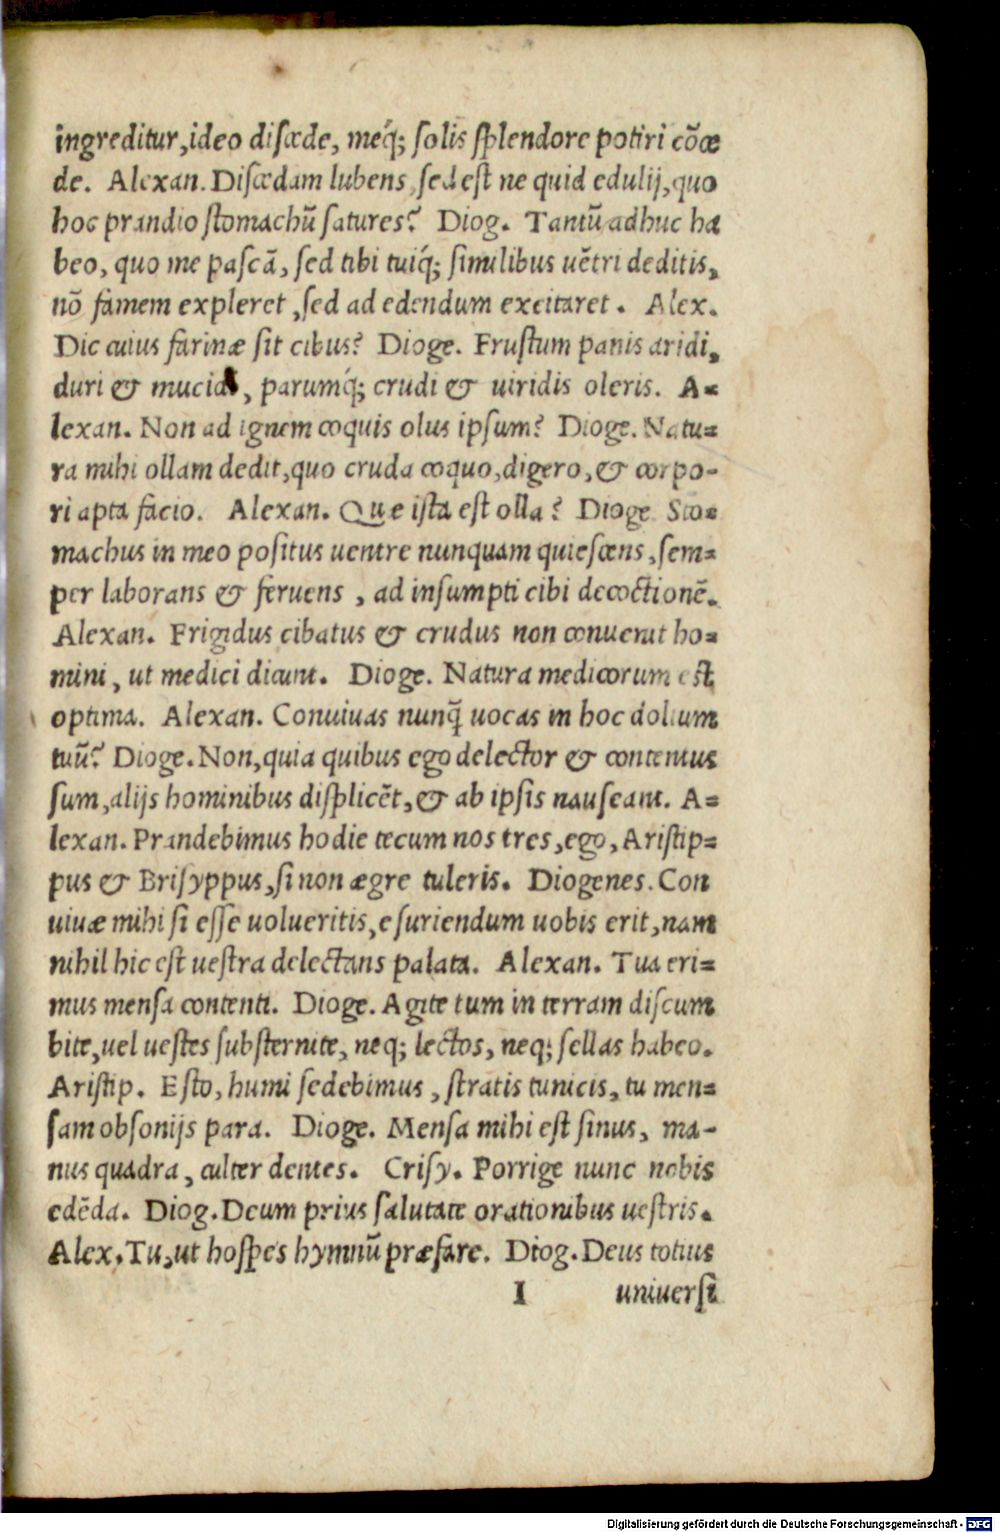 ingreditur,ideo discede, meq́; solis splendore potiri cõce
de. Alexan. Discedam lubens, sed est ne quid edulij,quo
hoc prandio stomachũ satures? Diog. Tantũ adhuc ha
beo, quo me pascã, sed tibi tuiq́; similibus uẽtri deditis,
nõ famem expleret ,sed ad edendum excitaret . Alex.
Dic cuius farinæ sit cibus? Dioge. Frustum panis aridi,
duri & mucidi, parumq́; crudi & uiridis oleris. A=
lexan. Non ad ignem coquis olus ipsum? Dioge. Natu=
ra mihi ollam dedit,quo cruda coquo,digero,& corpo-
ri apta facio. Alexan. Que ista est olla ? Dioge Sto=
machus in meo positus uentre nunquam quiescens,sem=
per laborans & feruens , ad insumpti cibi decoctionẽ.
Alexan. Frigidus cibatus & crudus non conuenit ho=
mini, ut medici dicunt. Dioge. Natura medicorum est
optima. Alexan. Conuiuas nunq̃ uocas in hoc dolium
tuũ? Dioge. Non,quia quibus ego delector & contentus
sum,alijs hominibus displicẽt,& ab ipsis nauseant. A=
lexan. Prandebimus hodie tecum nos tres,ego,Aristip=
pus & Brisyppus,si non ægre tuleris. Diogenes. Con
uiuæ mihi si esse uolueritis,esuriendum uobis erit,nam
nihil hic est uestra delectans palata. Alexan. Tua eri=
mus mensa contenti. Dioge. Agite tum in terram discum
bite,uel uestes substernite, neq; lectos, neq; sellas habeo.
Aristip. Esto, humi sedebimus , stratis tunicis, tu men=
sam obsonijs para. Dioge. Mensa mihi est sinus, ma-
nus quadra, culter dentes. Crisy. Porrige nunc nobis
edẽda. Diog. Deum prius salutate orationibus uestris.
Alex. Tu,ut hospes hymnũ præfare. Diog. Deus totius
I universi
Digitalisierung gefördert durch die Deutsche Forschungsgemeinschaft - DFG